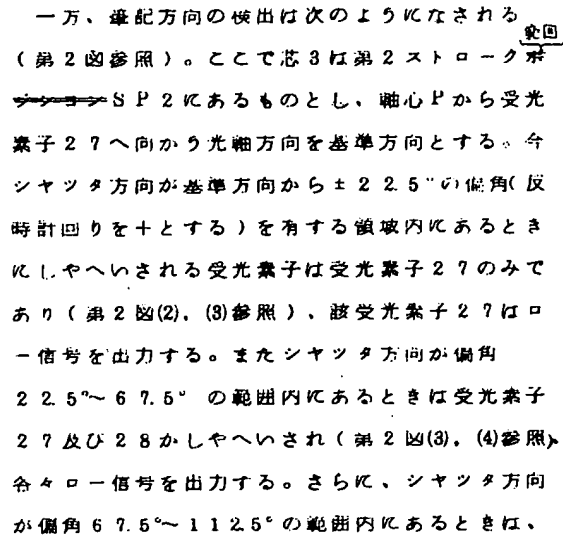 一方、筆記方向の検出は次のようになされる
(第2図参照)。ここで芯3は第2ストローク範囲
SP2にあるものとし、軸心Pから受光
素子27へ向かう光軸方向を基準方向とする。今
シヤツタ方向が基準方向から±22.5°の偏角(反
時計回りを+とする)を有する領域内にあるとき
にしやへいされる受光素子は受光素子27のみで
あり(第2図(2)，(3)参照)、該受光素子27はロ
ー信号を出力する。またシヤツタ方向が偏角
22.5°~67.5°の範囲内にあるときは受光素子
27及び28がしやへいされ(第2図(3)，(4)参照)、
各々ロー信号を出力する。さらに、シヤツタ方向
が偏角67.5°~112.5°の範囲内にあるときは、